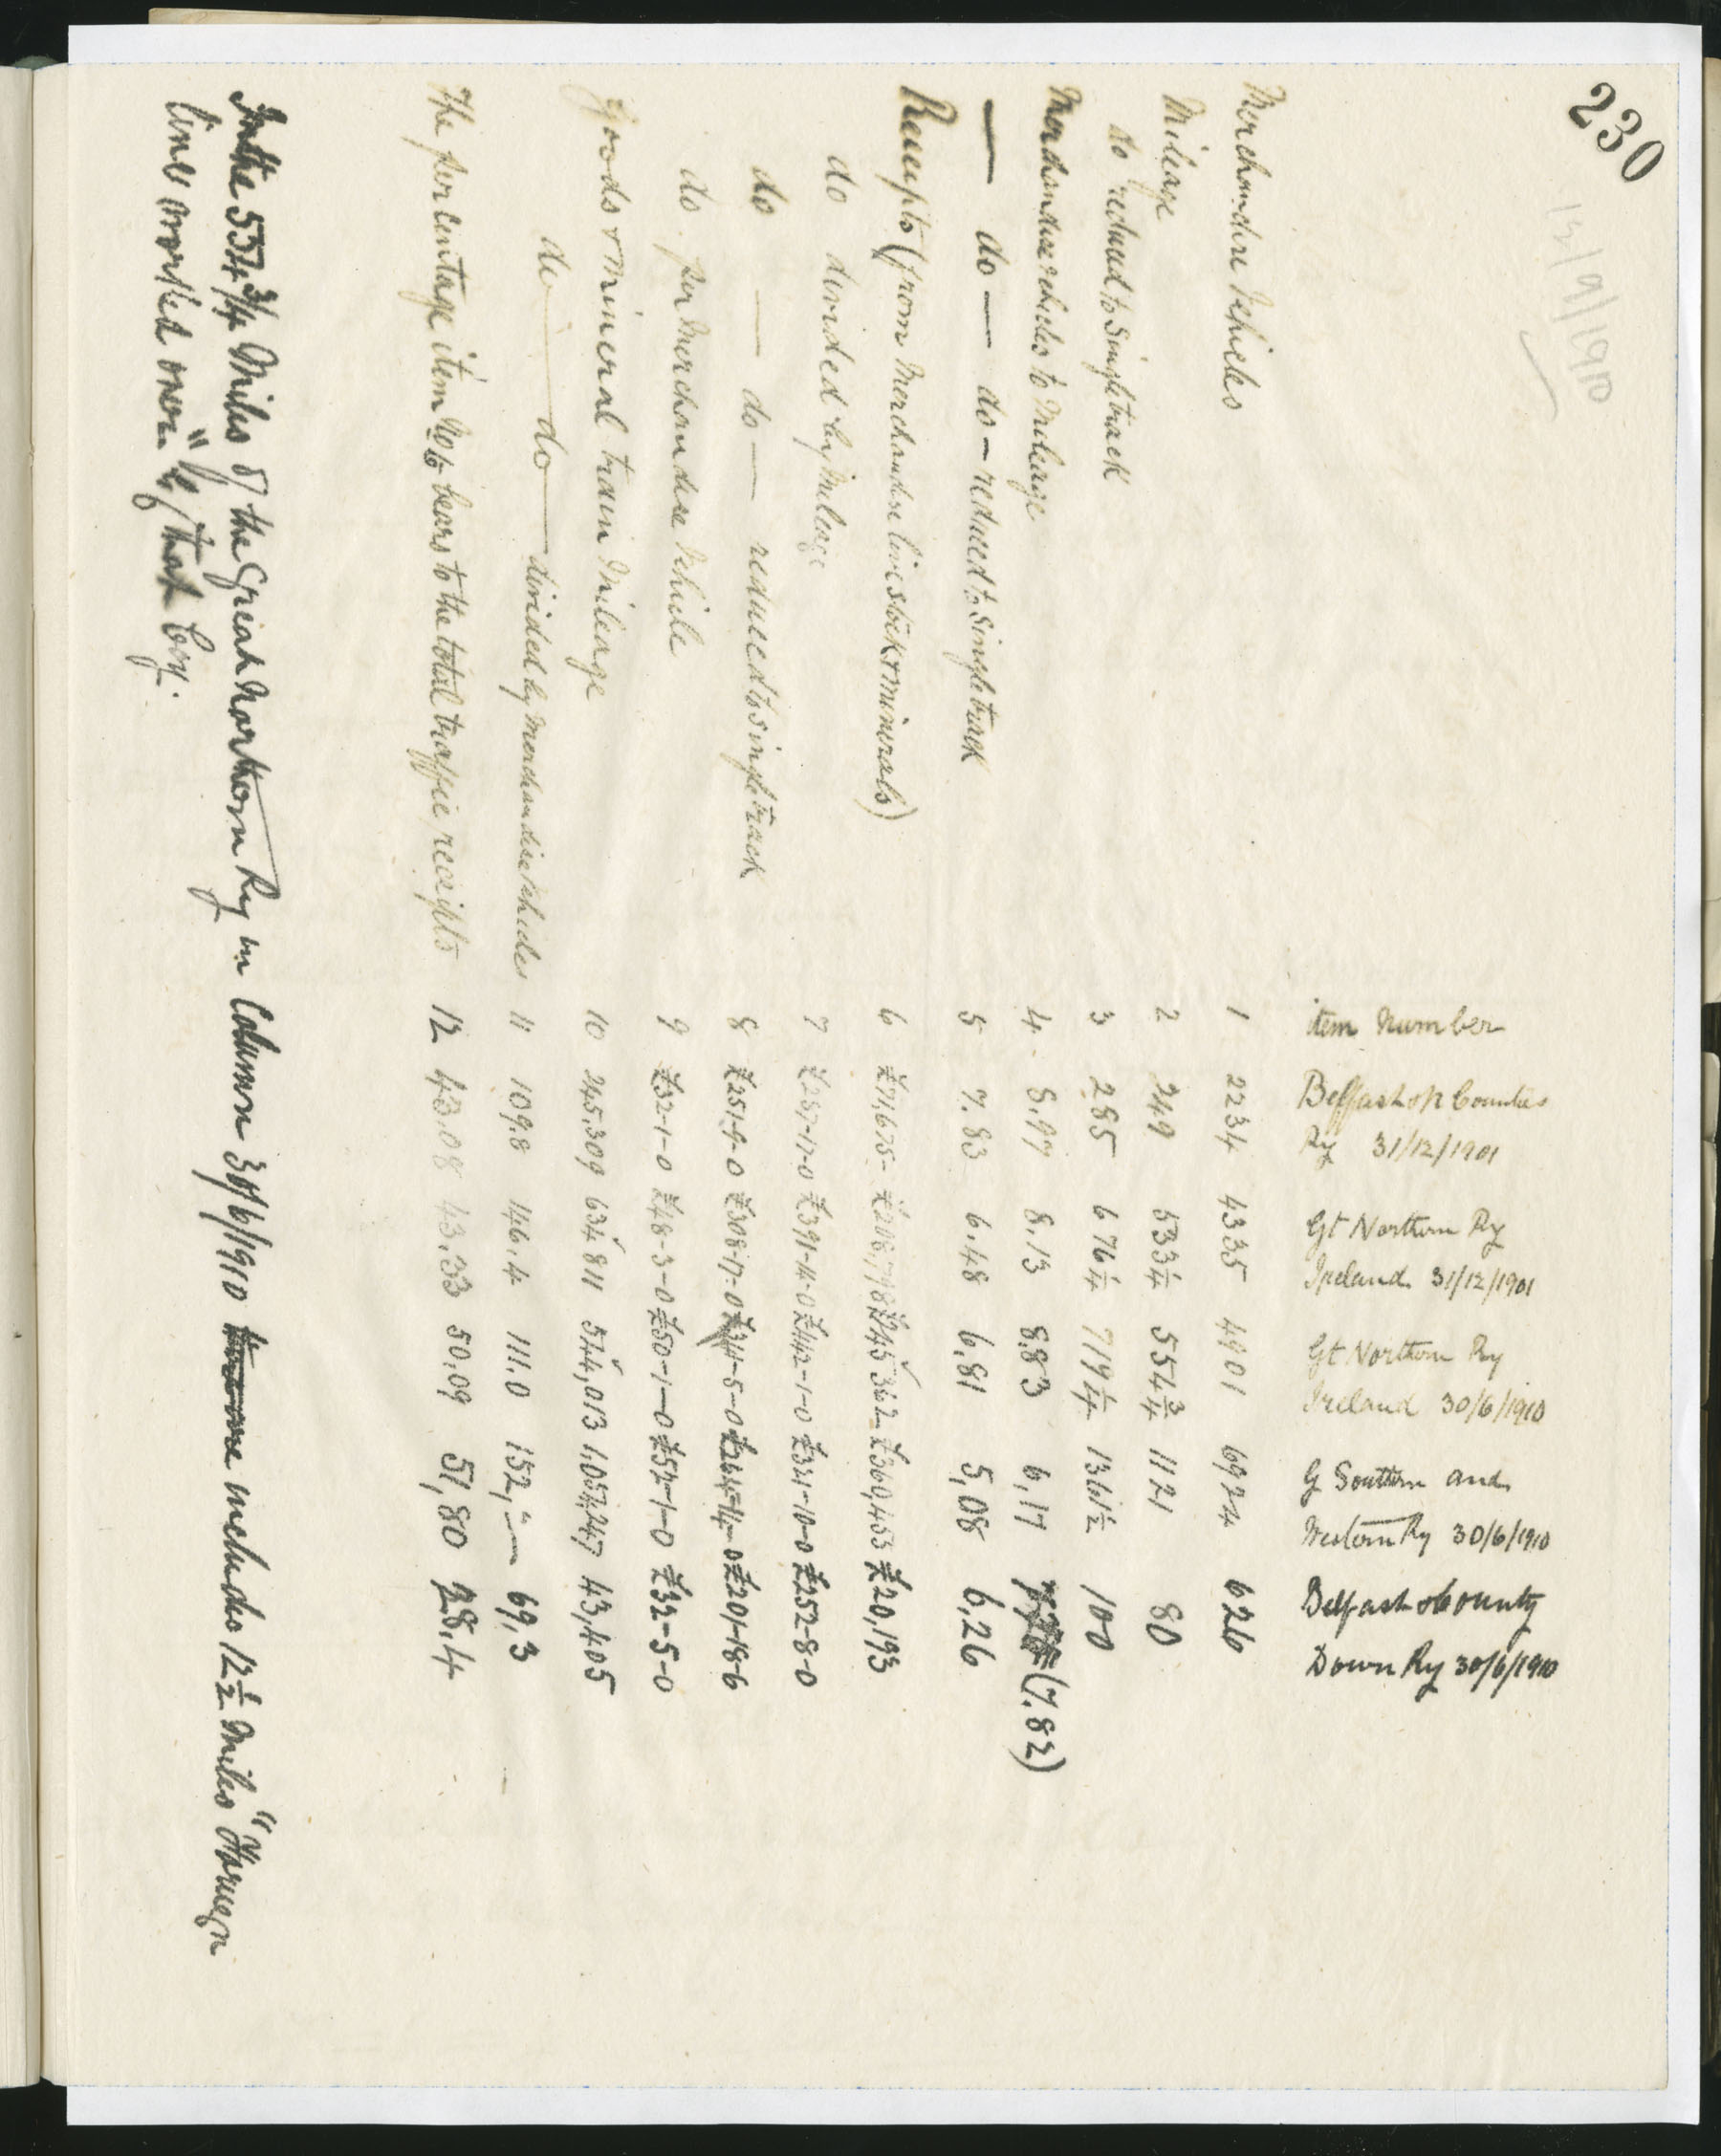 230
13/9/1910
item Number
Belfast & N Counties
Ry 31/12/1901
Gt Northern Ry
Ireland 31/12/1901
Gt Northern Ry
Ireland 30/6/1910
G Southern and
Western Ry 30/6/1910
Belfast & County
Down Ry 30/6/1910
Merchandise Vehicles 1 2234 4335 4901 6924 626
Mileage 2 249 533¼ 554¾ 1121 80
do reduced to Single track 3 285 676¼ 719¼ 1361½ 100
Merchandise vehicles to Mileage 4 8.97 8.13 8.83 6,17 (7.82)
— do — do — reduced to Single track 5 7.83 6.48 6.81 5,08 6,26
Receipts (from Merchandise live stock & minerals) 6 £71,675 - £245 362 - £360,453 £20,193
do divided by Mileage 7 £287-17-0 £391-14-0 £442-1-0 £321-10-0 £252-8-0
do — do — reduced to single track 8 £251-9-0 £308-17-0 £341-5-0 £264-14-0 £201-18-6
do per Merchandise Vehicle 9 £32-1-0 £48-3-0 £50-1-0 £52-1-0 £32-5-0
Goods & Mineral train Mileage 10 245,309 634 811 544,013 1,052,247 43,405
do — do — divided by Merchandise Vehicles 11 109.8 146.4 111.0 152,"— 69,3
The per centage item No 6 bears to the total traffic receipts 12 43.08 43.33 50.09 51,80 28.4
In the 554¾ Miles of the Great Northern Ry in Column 30/6/1910 include 12½ Miles "Foreign
lines worked over" by that Coy.